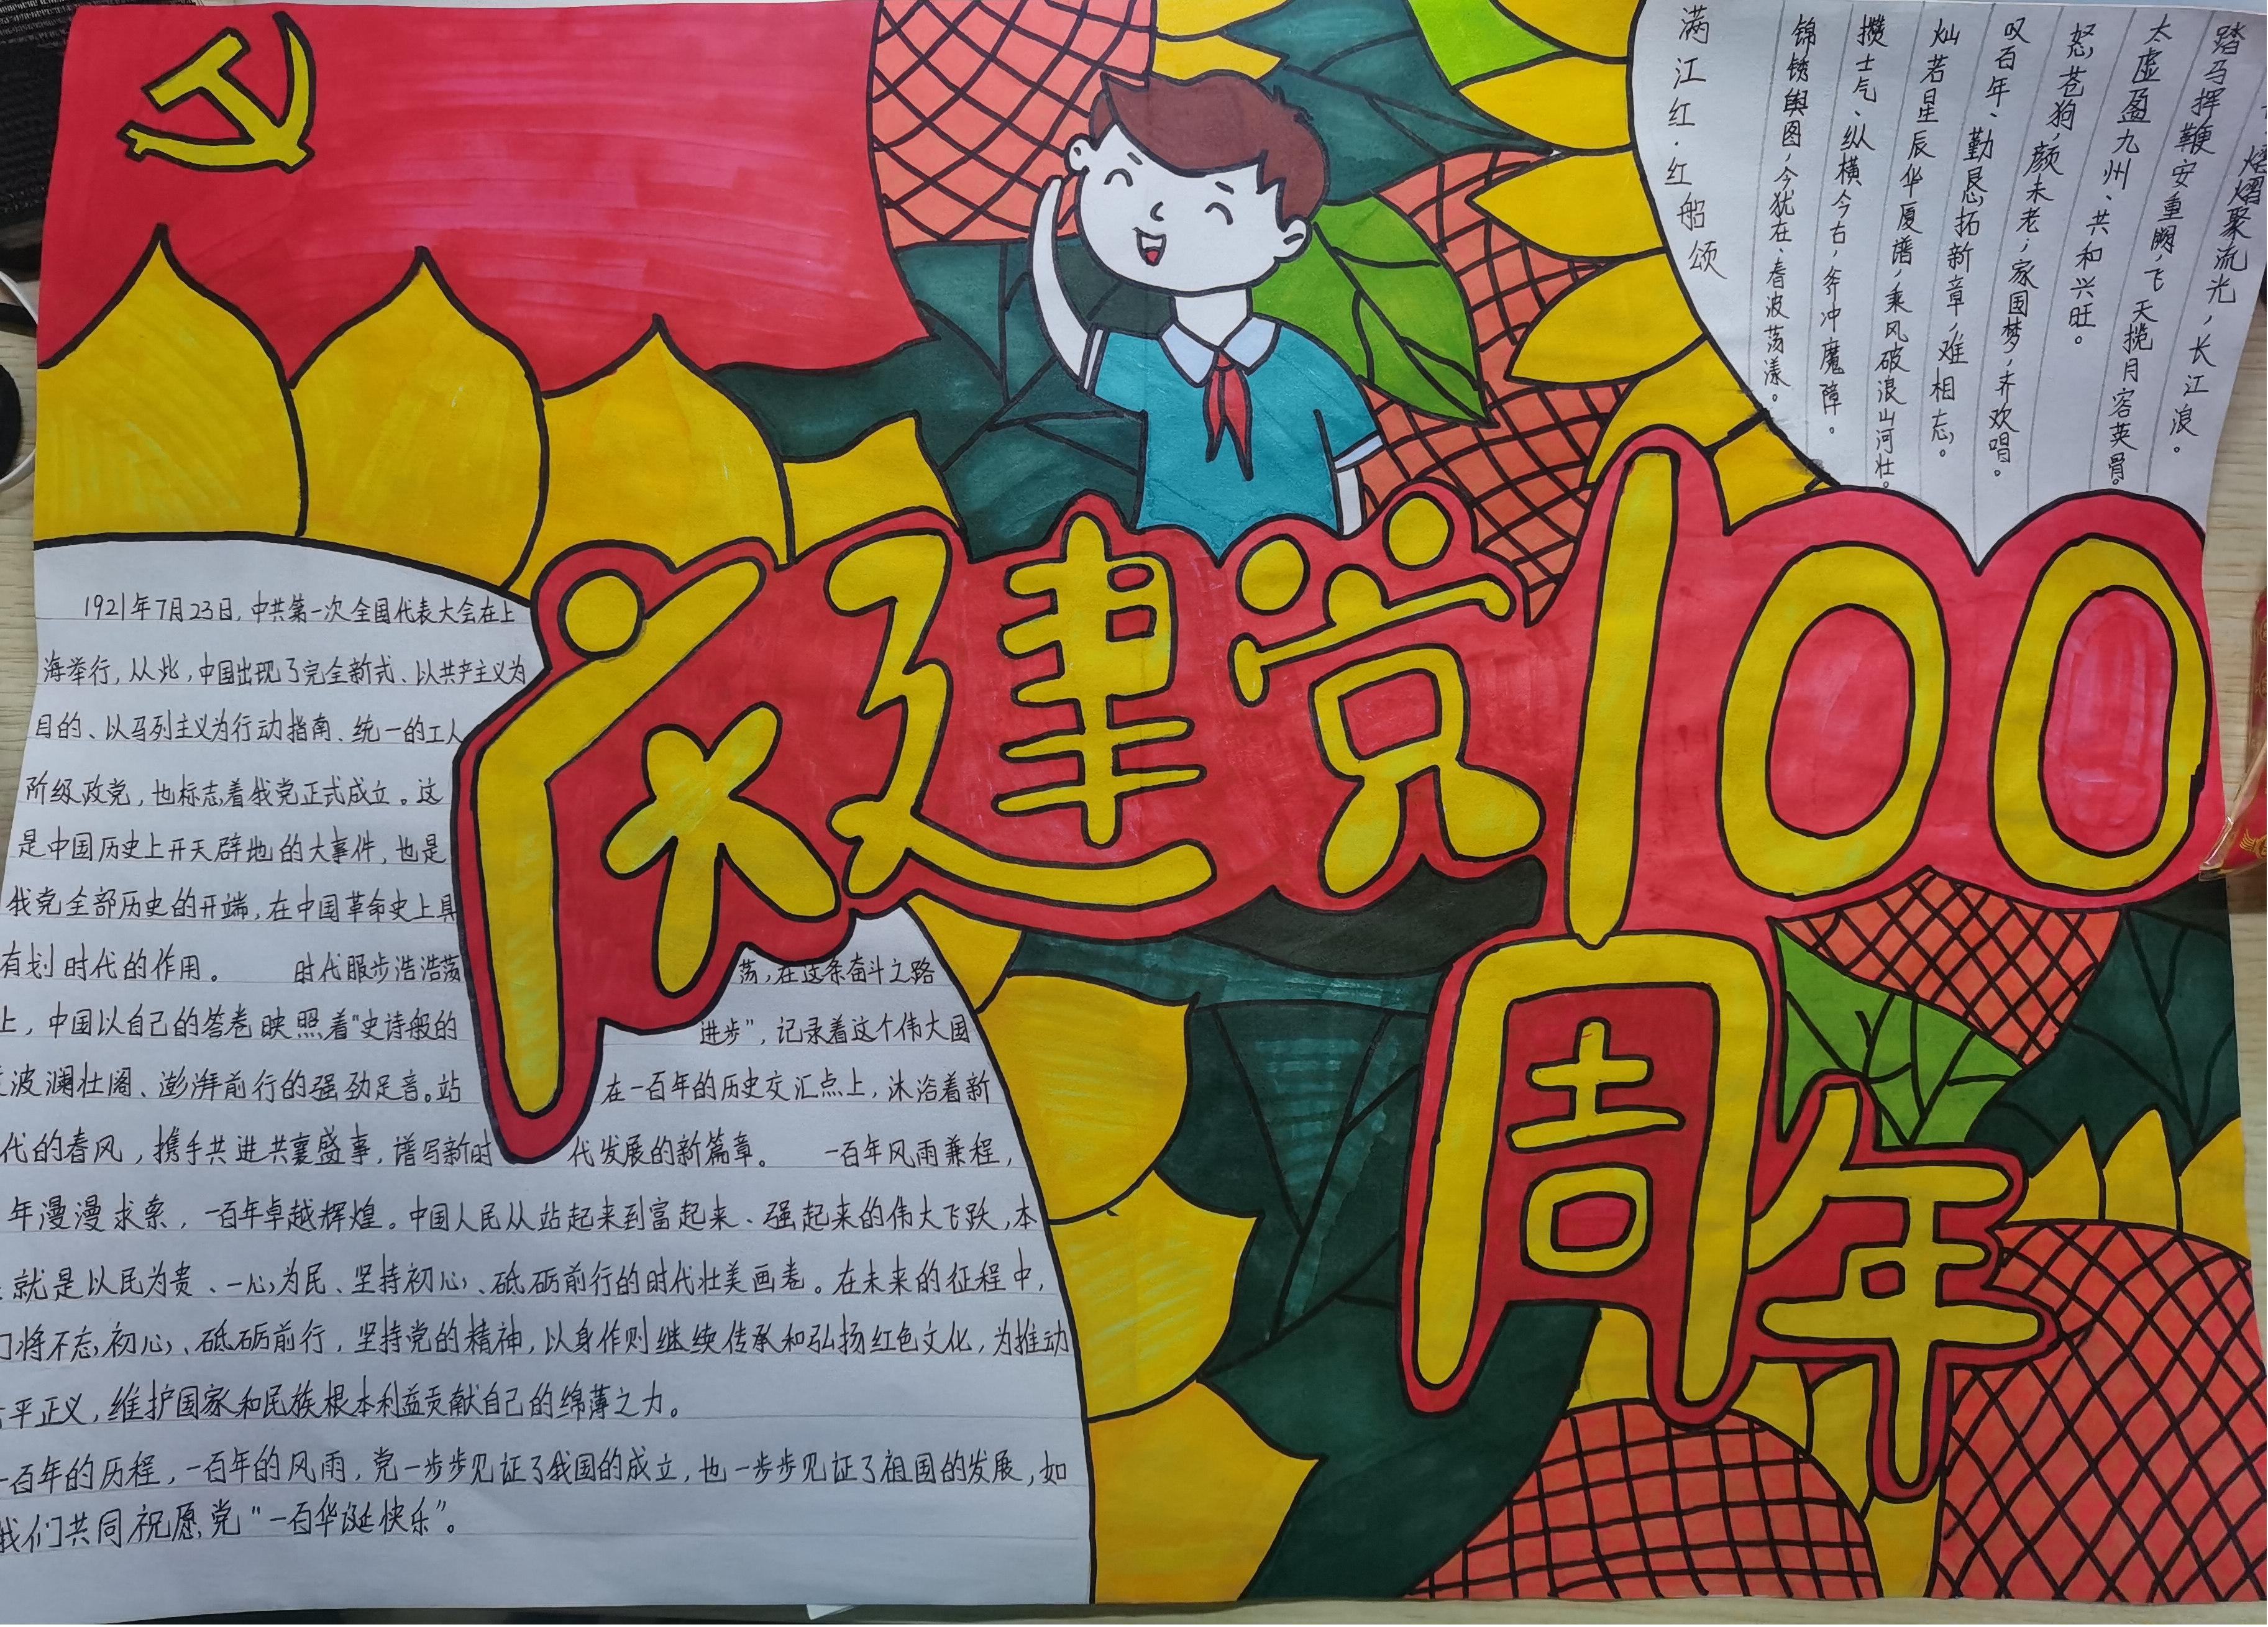 满江红·红船颂
锦锈舆图，今犹在、春波荡漾。
攒士气、纵横今古，奔冲魔障。
灿若星辰华厦谱，乘风破浪山河壮。
叹百年、勤恳拓新章，难相忘。
怒苍狗，颜未老；家国梦，齐欢唱。
太虚盈九州、共和兴旺。
踏马挥鞭安重阙，飞天揽月容英骨。
熠熠聚流光，长江浪。
庆建党100
周年
1921年7月23日，中共第一次全国代表大会在上
海举行，从此，中国出现了完全新式、以共产主义为
目的、以马列主义为行动指南、统一的工人
阶级政党，也标志着我党正式成立。这
是中国历史上开天辟地的大事件，也是
我党全部历史的开端，在中国革命史上具
有划时代的作用。 时代服步浩浩荡荡，在这条奋斗之路
上，中国以自己的答卷映照着“史诗般的进步”，记录着这个伟大国
波澜壮阔、澎湃前行的强劲足音。站在一百年的历史交汇点上，沐浴着新
代的春风，携手共进共襄盛事，谱写新时代发展的新篇章。 一百年风雨兼程，
年漫漫求索，一百年卓越辉煌。中国人民从站起来到富起来、强起来的伟大飞跃，本
就是以民为贵、一心为民、坚持初心、砥砺前行的时代壮美画卷。在未来的征程中，
们将不忘初心、砥砺前行，坚持党的精神，以身作则继续传承和弘扬红色文化，为推动
平正义，维护国家和民族根本利益贡献自己的绵薄之力。
一百年的历程，一百年的风雨，党一步步见证了我国的成立，也一步步见证了祖国的发展，如
我们共同祝愿党“一百华诞快乐”。